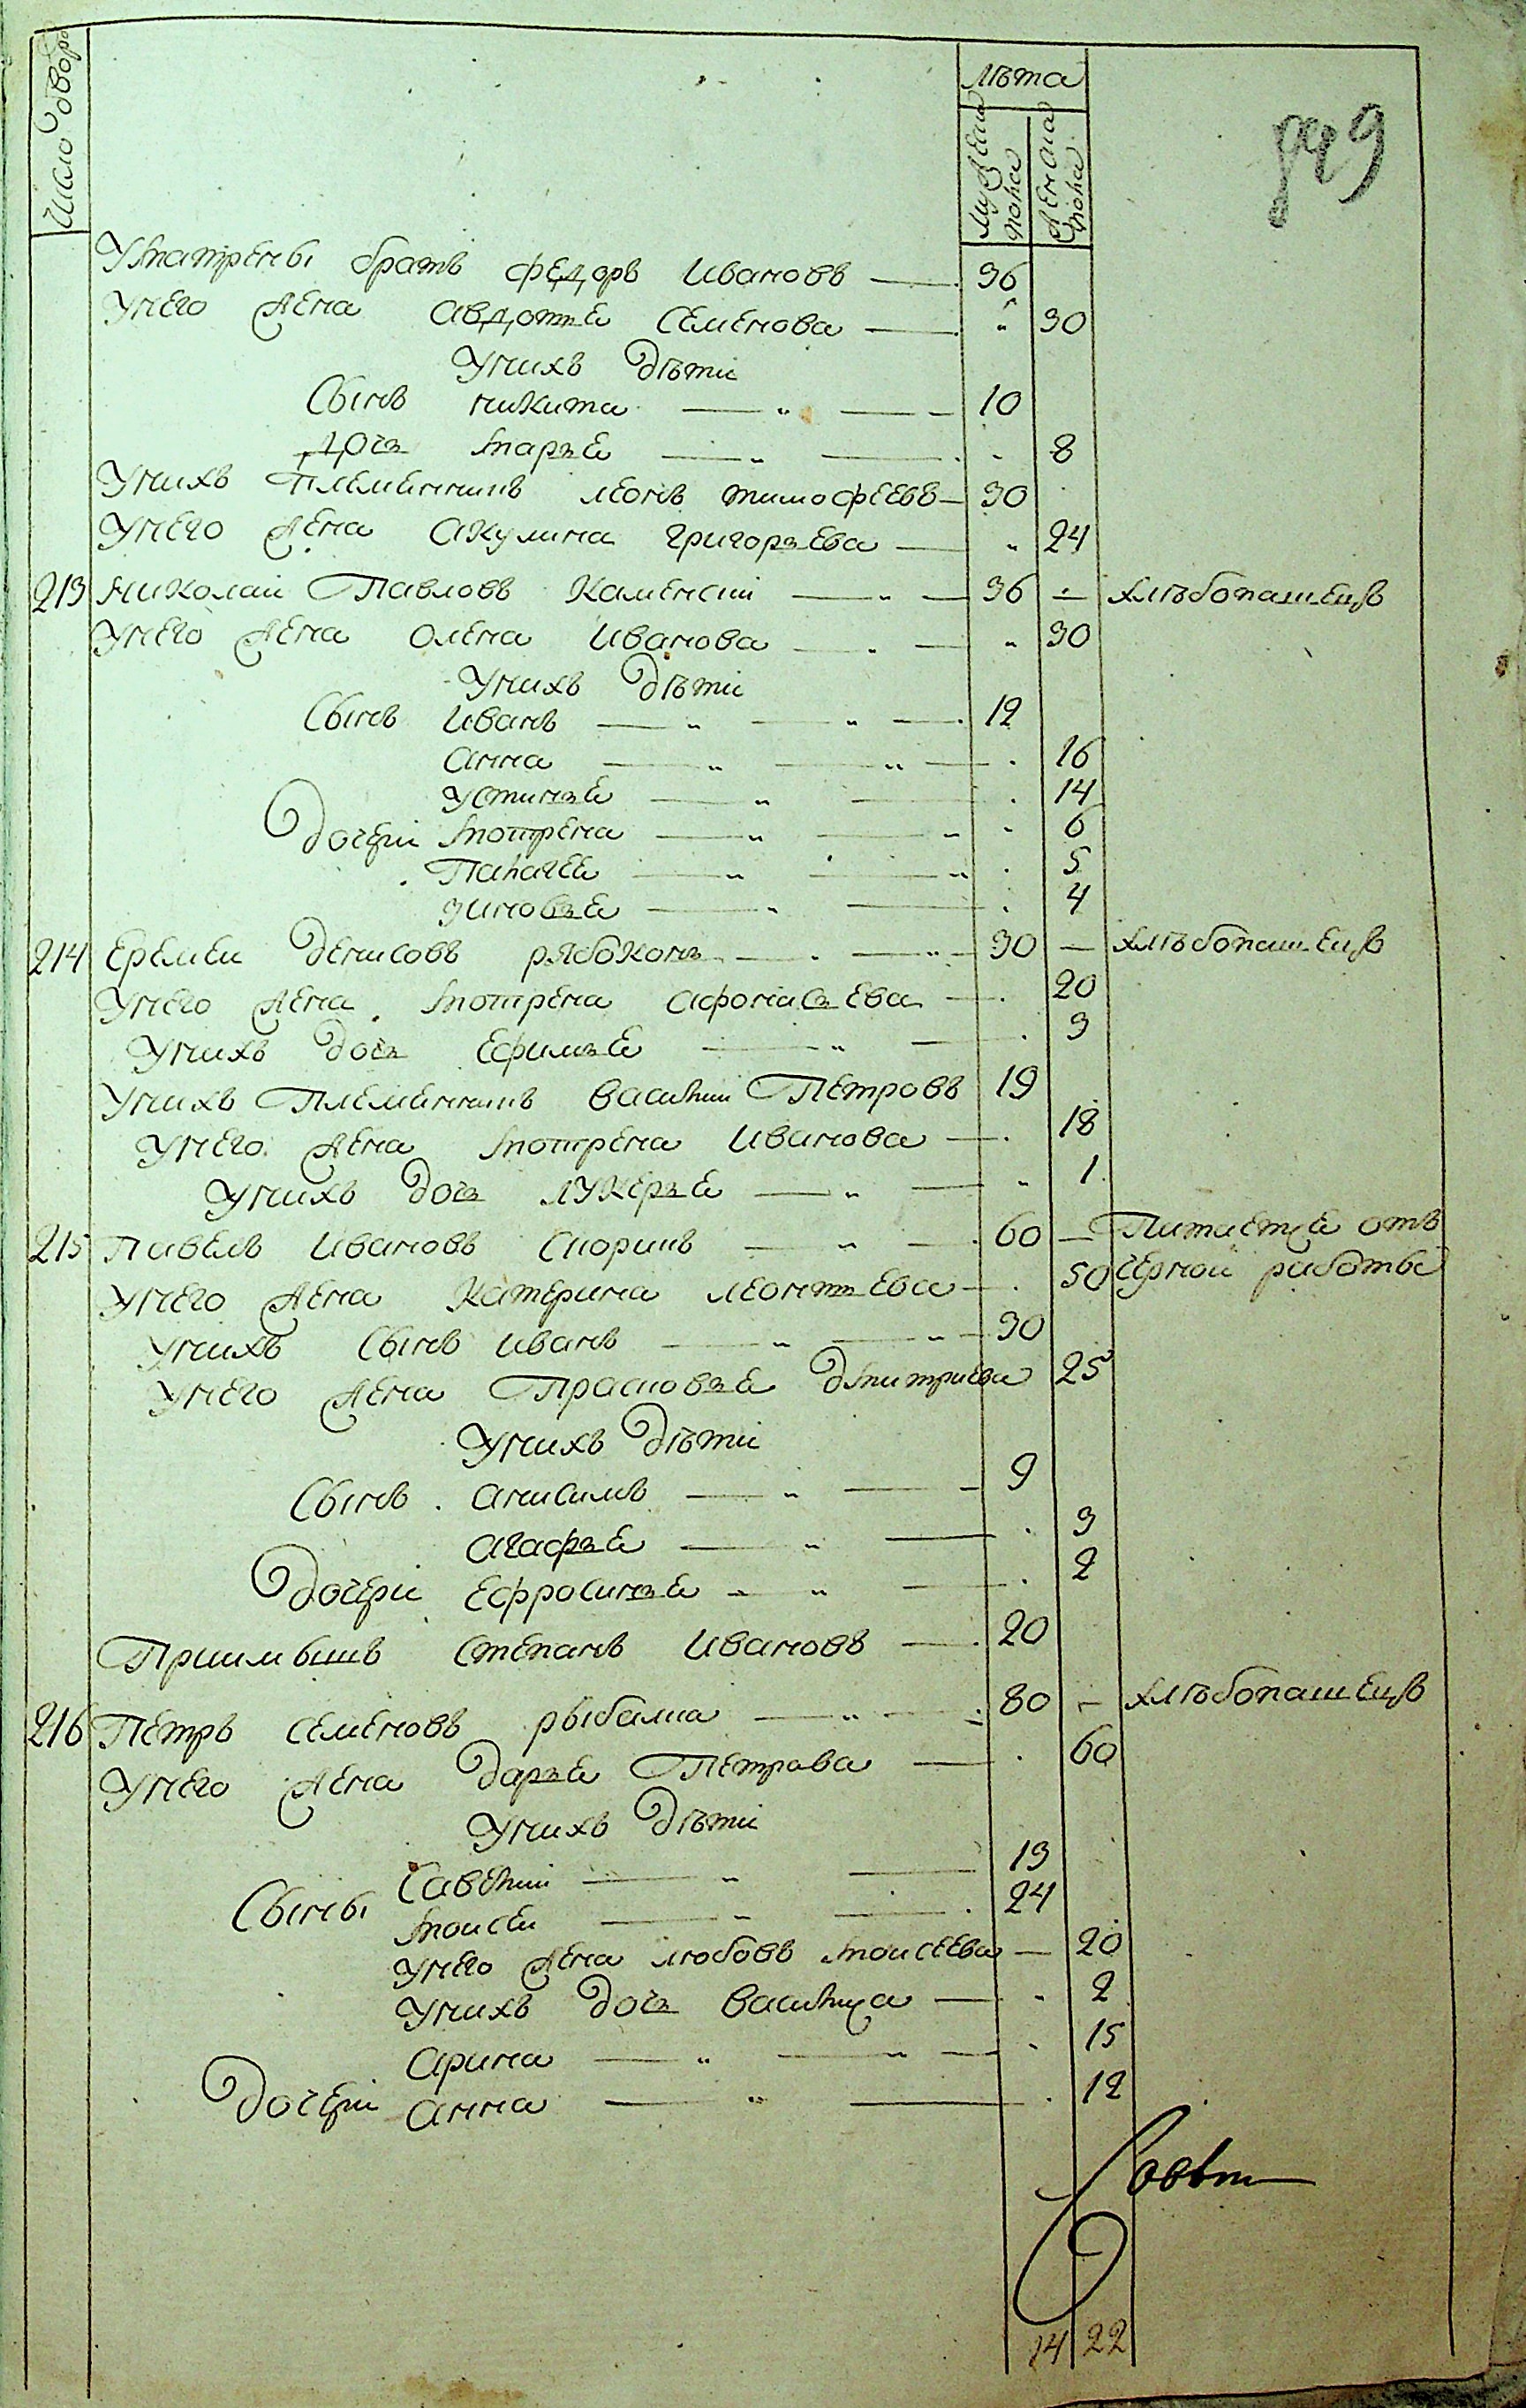 Число дворо
Лѣта
Мужеска пола
Женска пола
9
У Матрены братъ Федоръ Ивановъ — 36
У него жена Авдотье Семенова — " 30
У нихъ дѣти
Сынъ Никита — " — 10
Дочь Марье — " — 8
У нихъ племенникъ Леонъ Тимофеевъ — 30
У него жена Акулина Григорьева — " 24
213 Николай Павловъ Каменскій — " — 36 — хлѣбопашецъ
У него жена Олена Иванова — " 30
У нихъ дѣти
Сынъ Иванъ — " — " — 12
Анна — " — " — 16
Устинье — " — 14
Дочери Мотрена — " — " 6
Пелагее — " — " 5
Зиновье — " — 4
214 Еремеи Денисовъ Рябоконь — " — 30 — хлѣбопашецъ
У него жена Мотрена Афонасьева — 20
У нихъ дочь Ефимье — " — 3
У нихъ племенникъ Василии Петровъ 19
У него жена Мотрена Иванова — 18
У нихъ дочь Лукерье — " — " 1
215 Павелъ Ивановъ Скорикъ — " — 60 — Питается отъ
У него жена Катерина Леонтьева — 50 черной работы
У нихъ сынъ Иванъ — " — " — 30
У него жена Прасковье Дмитриева 25
У нихъ дѣти
Сынъ Анисимъ — " — 9
Агафье — " — 3
Дочери Ефросинье — " — 2
Приимышъ Степанъ Ивановъ — 20
216 Петръ Семеновъ Рыбалка — " — 80 — хлѣбопашецъ
У него жена Дарье Петрова — 60
У нихъ дѣти
Савелии — " — 13
Сыны Моисеи — " — 24
У него жена Любовъ Моисеева — 20
У нихъ дочь Василиса — " 2
Арина — " — " — " 15
Дочери Анна — " — 12
14 22